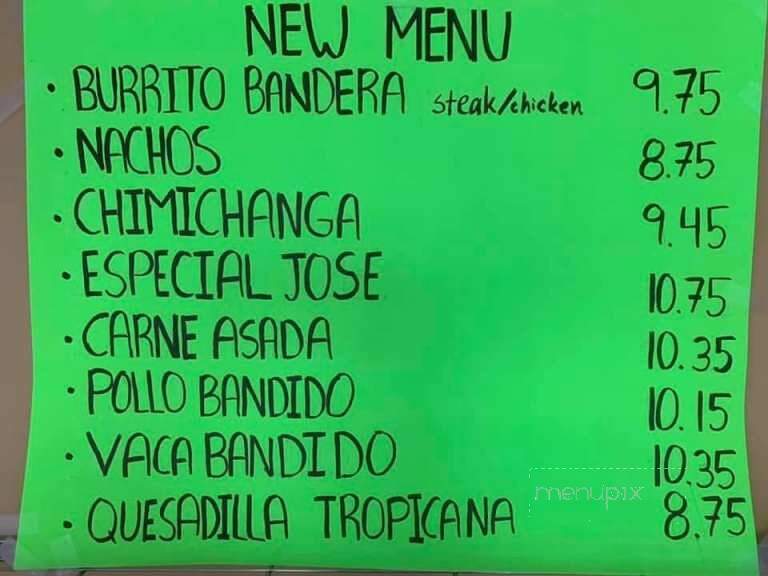 NEW MENU
• BURRITO BANDERA steak/chicken 9.75
• NACHOS 8.75
• CHIMICHANGA 9.45
• ESPECIAL JOSE 10.75
• CARNE ASADA 10.35
• POLLO BANDIDO 10.15
• VACA BANDIDO 10.35
menupix
• QUESADILLA TROPICANA 8.75